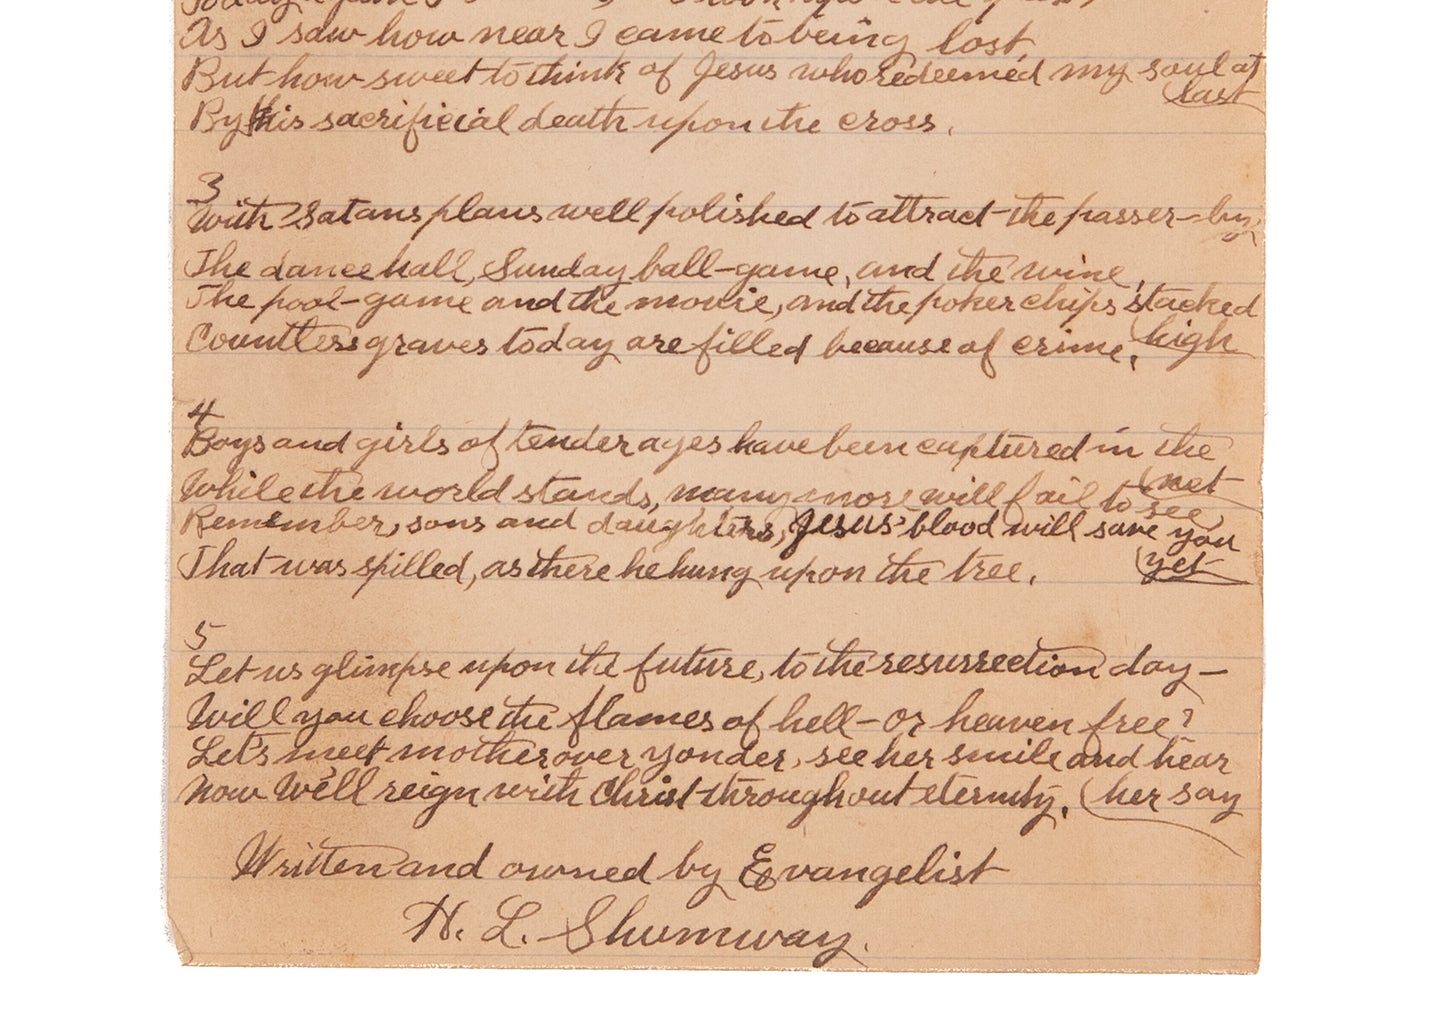 As I saw how near I came to being lost,
But how sweet to think of Jesus who redeemed my soul at
last
By His sacrificial death upon the cross.
3
With Satans plans well polished to attract the passer-by,
The dance hall, Sunday ball-game, and the wine,
The pool-game and the movie, and the poker chips stacked
high
Countless graves today are filled because of crime.
4
Boys and girls of tender ages have been captured in the
net
While the world stands, many more will fail to see,
Remember, sons and daughters, Jesus' blood will save you
yet
That was spilled, as there he hung upon the tree.
5
Let us glimpse upon the future, to the resurrection day-
Will you choose the flames of hell-or heaven free?
Let's meet mother over yonder, see her smile and hear
her say
Now We'll reign with Christ throughout eternity.
Written and owned by Evangelist
H. L. Shumway.